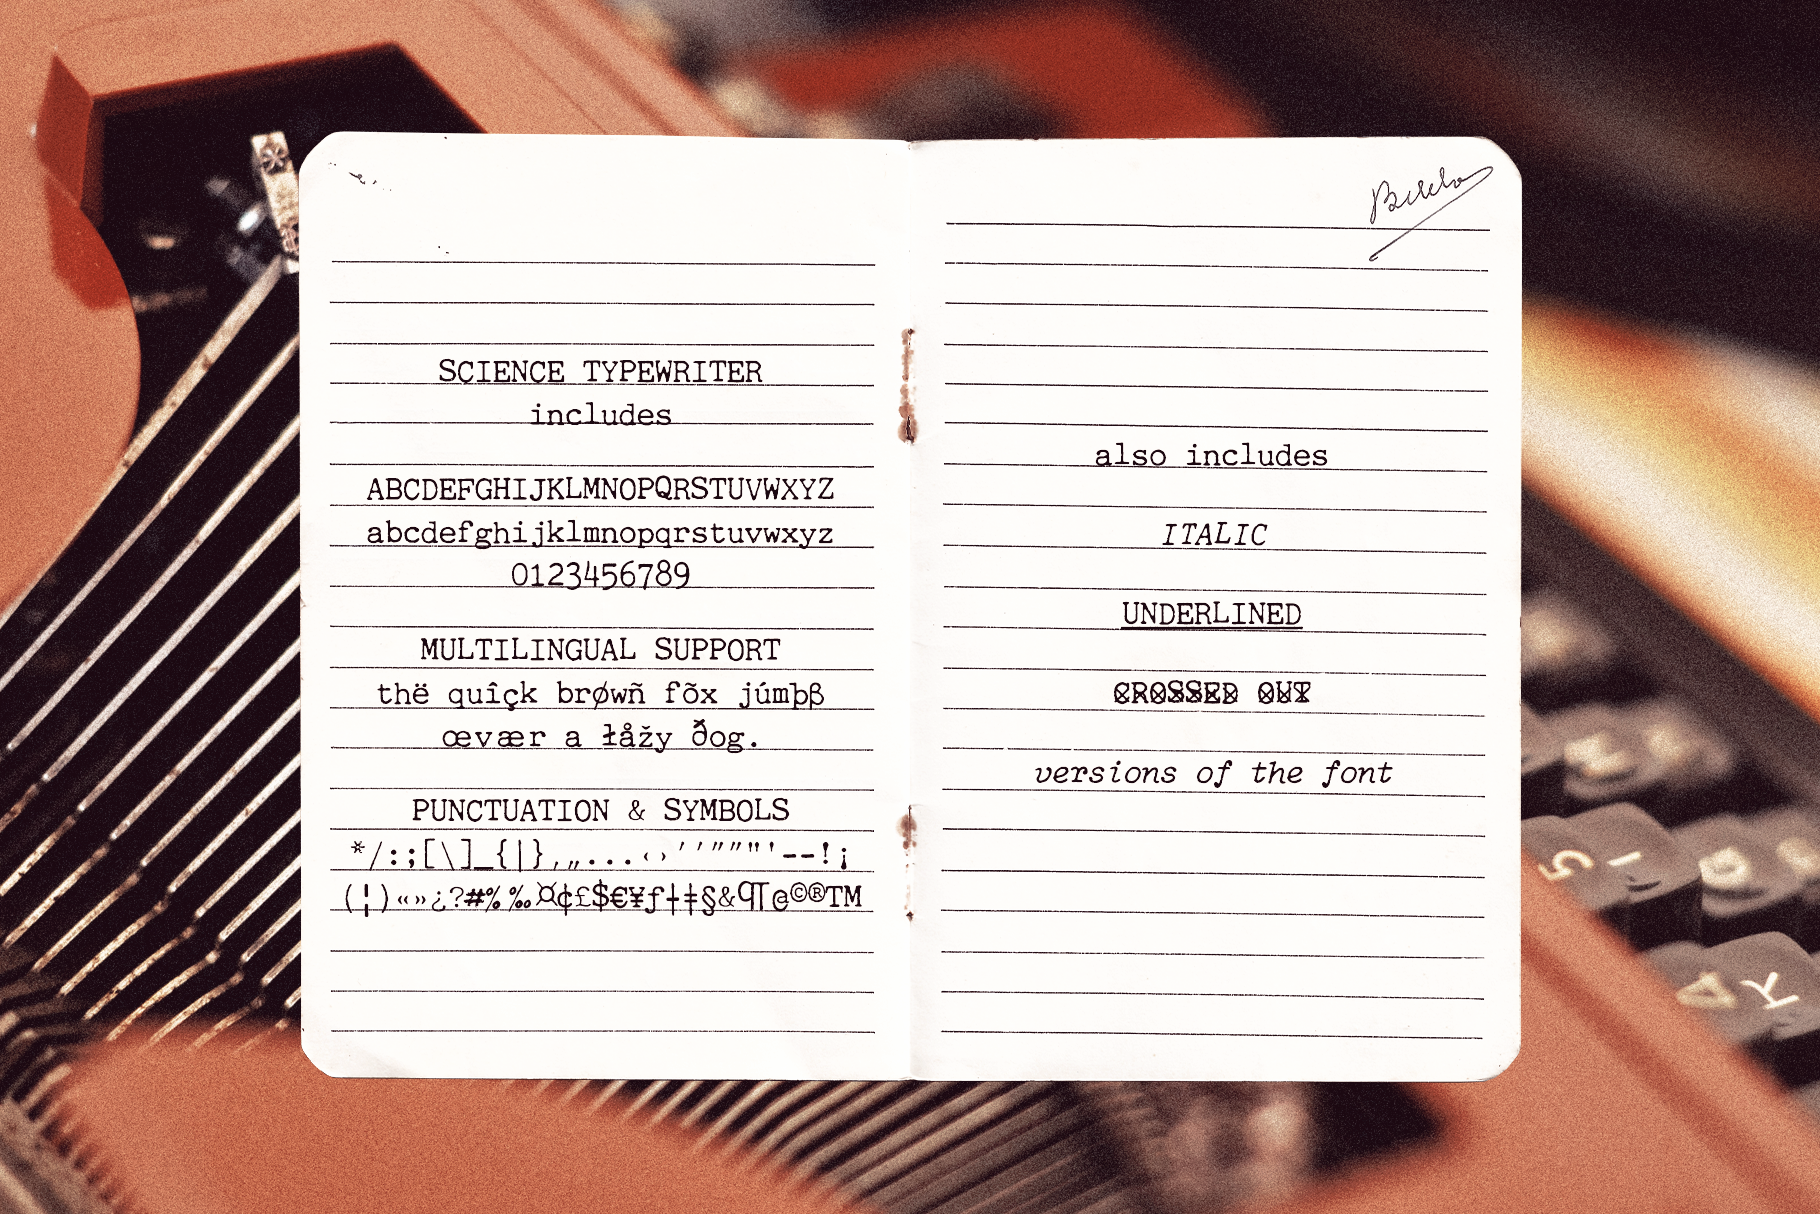 SCIENCE TYPEWRITER
includes
ABCDEFGHIJKLMNOPQRSTUVWXYZ
abcdefghijklmnopqrstuvwxyz
0123456789
MULTILINGUAL SUPPORT
thë quîçk brøwñ fõx júmþβ
œvær a łåžy ðog.
PUNCTUATION & SYMBOLS
*/:;[\]_{|},„...‹›‘’“”"'--!¡
(¦)«»¿?#%‰¤¢£$€¥ƒ†‡§&¶@©®TM
also includes
ITALIC
UNDERLINED
CROSSED OUT
versions of the font
5
K